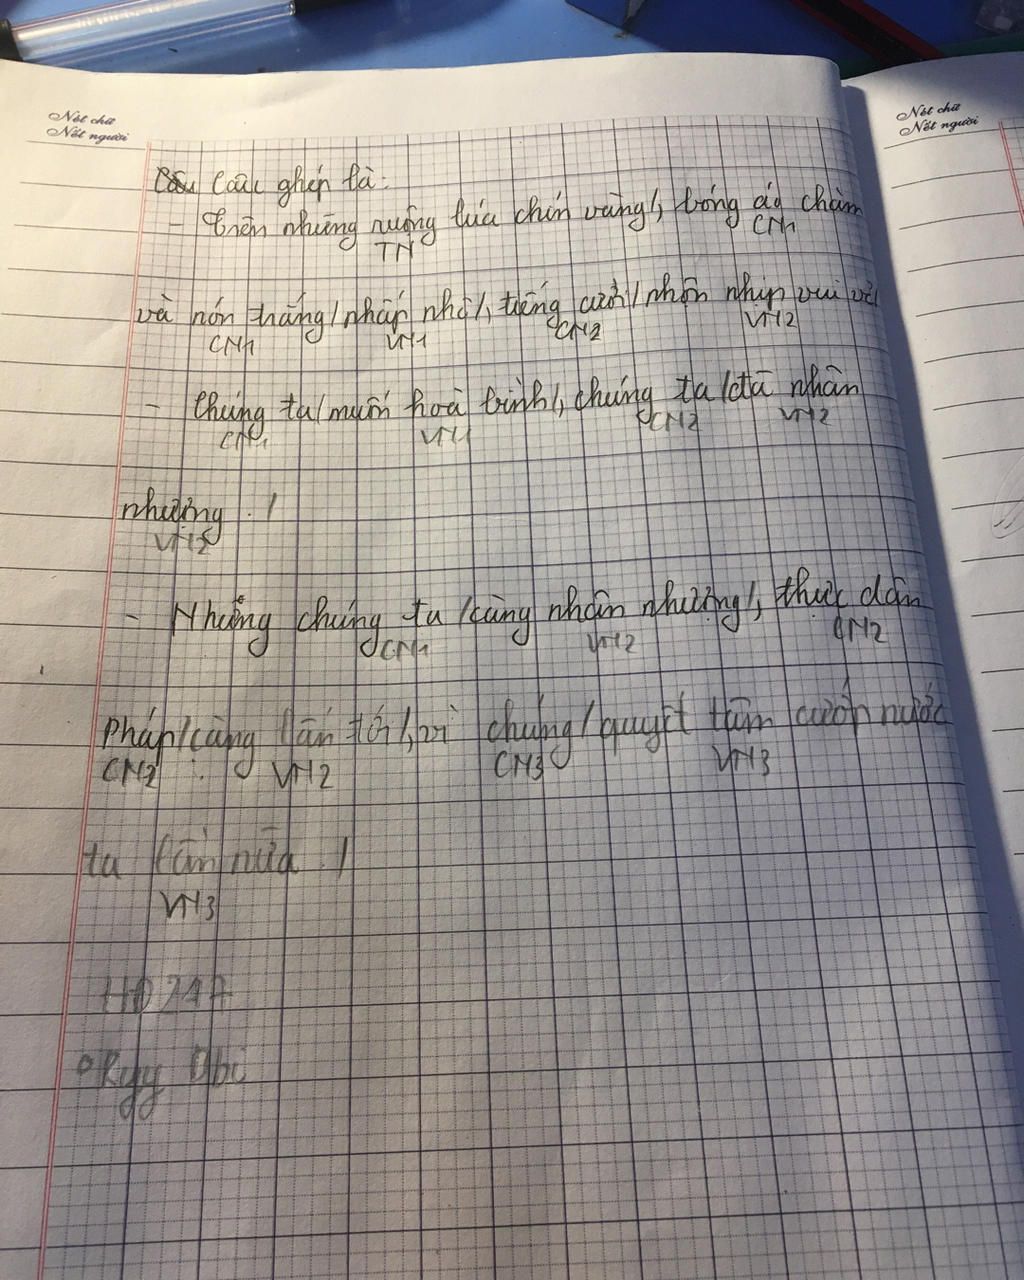 Nét chữ
Nết người
Nét chữ
Nết người
Câu ghép là:
- Trên những ruộng lúa chín vàng/, bóng áo chàm
TN CN1
và nón trắng/nhấp nhô/, tiếng cười/nhộn nhịp vui vẻ
CN1 VN1 CN2 VN2
- Chúng ta/muốn hoà bình/, chúng ta/đã nhân
CN1 VN1 CN2 VN2
nhượng ./
VN2
- Nhưng chúng ta/càng nhân nhượng/, thực dân
CN1 VN2 CN2
Pháp/càng lấn tới/, vì chúng/quyết tâm cướp nước
CN2 VN2 CN3 VN3
ta lần nữa ./
VN3
HD247